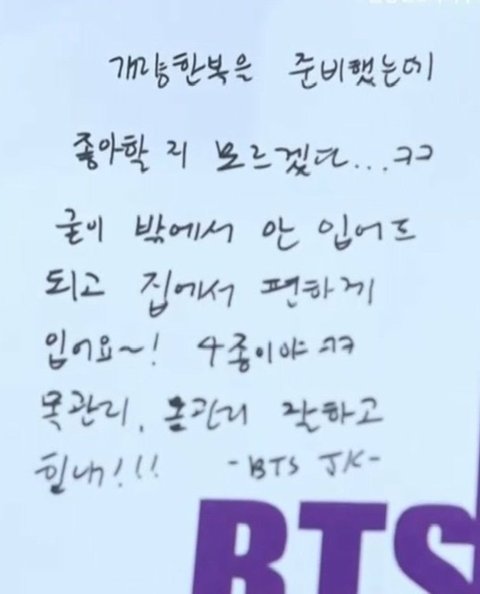 개량한복을 준비했는데
좋아할지 모르겠다...ㅋㅋ
굳이 밖에서 안 입어도
되고 집에서 편하게
입어요~! 4종이야 ㅋㅋ
목관리, 몸관리 잘하고
힘내!!! -BTS JK-
BTS